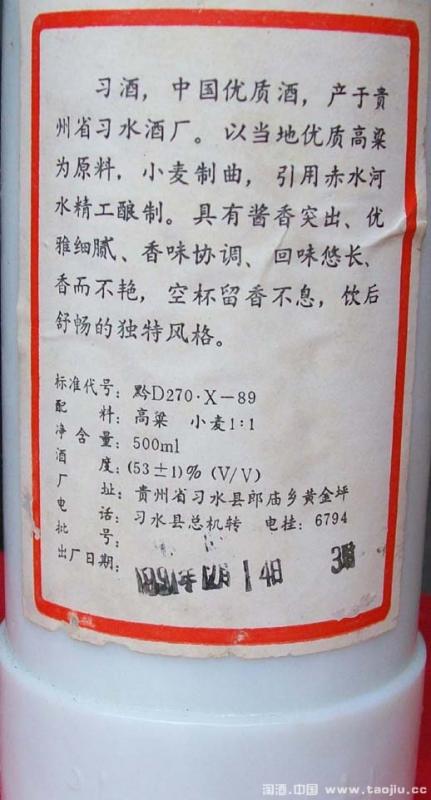 习酒，中国优质酒，产于贵
州省习水酒厂。以当地优质高粱
为原料，小麦制曲，引用赤水河
水精工酿制。具有酱香突出、优
雅细腻、香味协调、回味悠长、
香而不艳，空杯留香不息，饮后
舒畅的独特风格。
标准代号：黔D270·X—89
配料：高粱 小麦1:1
净含量：500ml
酒度：(53±1)% (V/V)
厂址：贵州省习水县郎庙乡黄金坪
电话：习水县总机转 电挂：6794
批号：
出厂日期：1991年12月14日
淘酒.中国 www.taojiu.cc